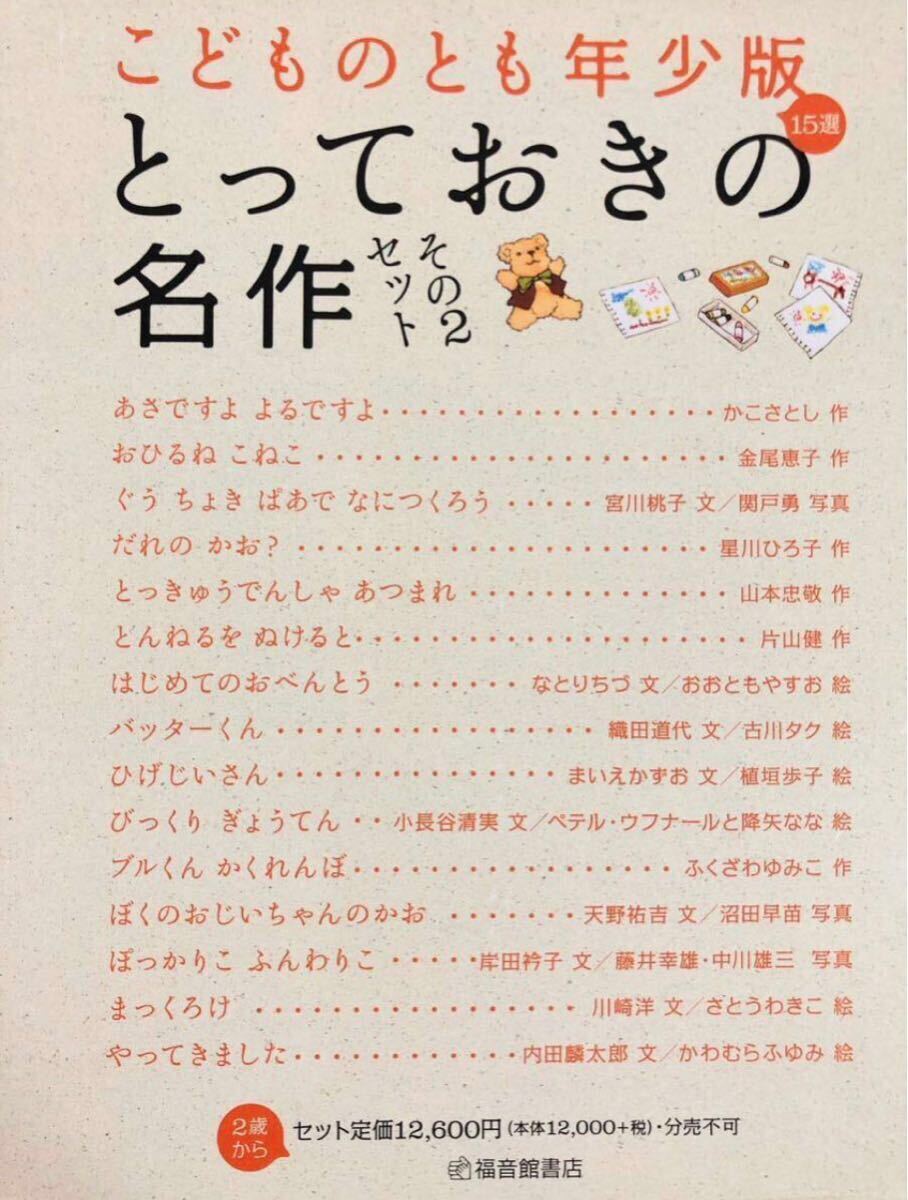 こどものとも年少版
15選
とっておきの
名作
その2
セット
あさですよ よるですよ・・・・・・・・・・・・・・・・・・・かこさとし 作
おひるね こねこ・・・・・・・・・・・・・・・・・・・・・・・金尾恵子 作
ぐう ちょき ぱあで なにつくろう・・・・・宮川桃子 文／関戸勇 写真
だれの かお？・・・・・・・・・・・・・・・・・・・・・・・星川ひろ子 作
とっきゅうでんしゃ あつまれ・・・・・・・・・・・・・・山本忠敬 作
とんねるを ぬけると・・・・・・・・・・・・・・・・・・・・・片山健 作
はじめてのおべんとう・・・・・・・なとりちづ 文／おおともやすお 絵
バッターくん・・・・・・・・・・・・・・・・・織田道代 文／古川タク 絵
ひげじいさん・・・・・・・・・・・・・・・まいえかずお 文／植垣歩子 絵
びっくり ぎょうてん・・小長谷清実 文／ペテル・ウフナールと降矢なな 絵
ブルくん かくれんぼ・・・・・・・・・・・・・・・・・・ふくざわゆみこ 作
ぼくのおじいちゃんのかお・・・・・・・天野祐吉 文／沼田早苗 写真
ぽっかりこ ふんわりこ・・・・・岸田衿子 文／藤井幸雄・中川雄三 写真
まっくろけ・・・・・・・・・・・・・・・・・川崎洋 文／さとうわきこ 絵
やってきました・・・・・・・・・・・・内田麟太郎 文／かわむらふゆみ 絵
2歳
から
セット定価12,600円(本体12,000+税)・分売不可
福音館書店